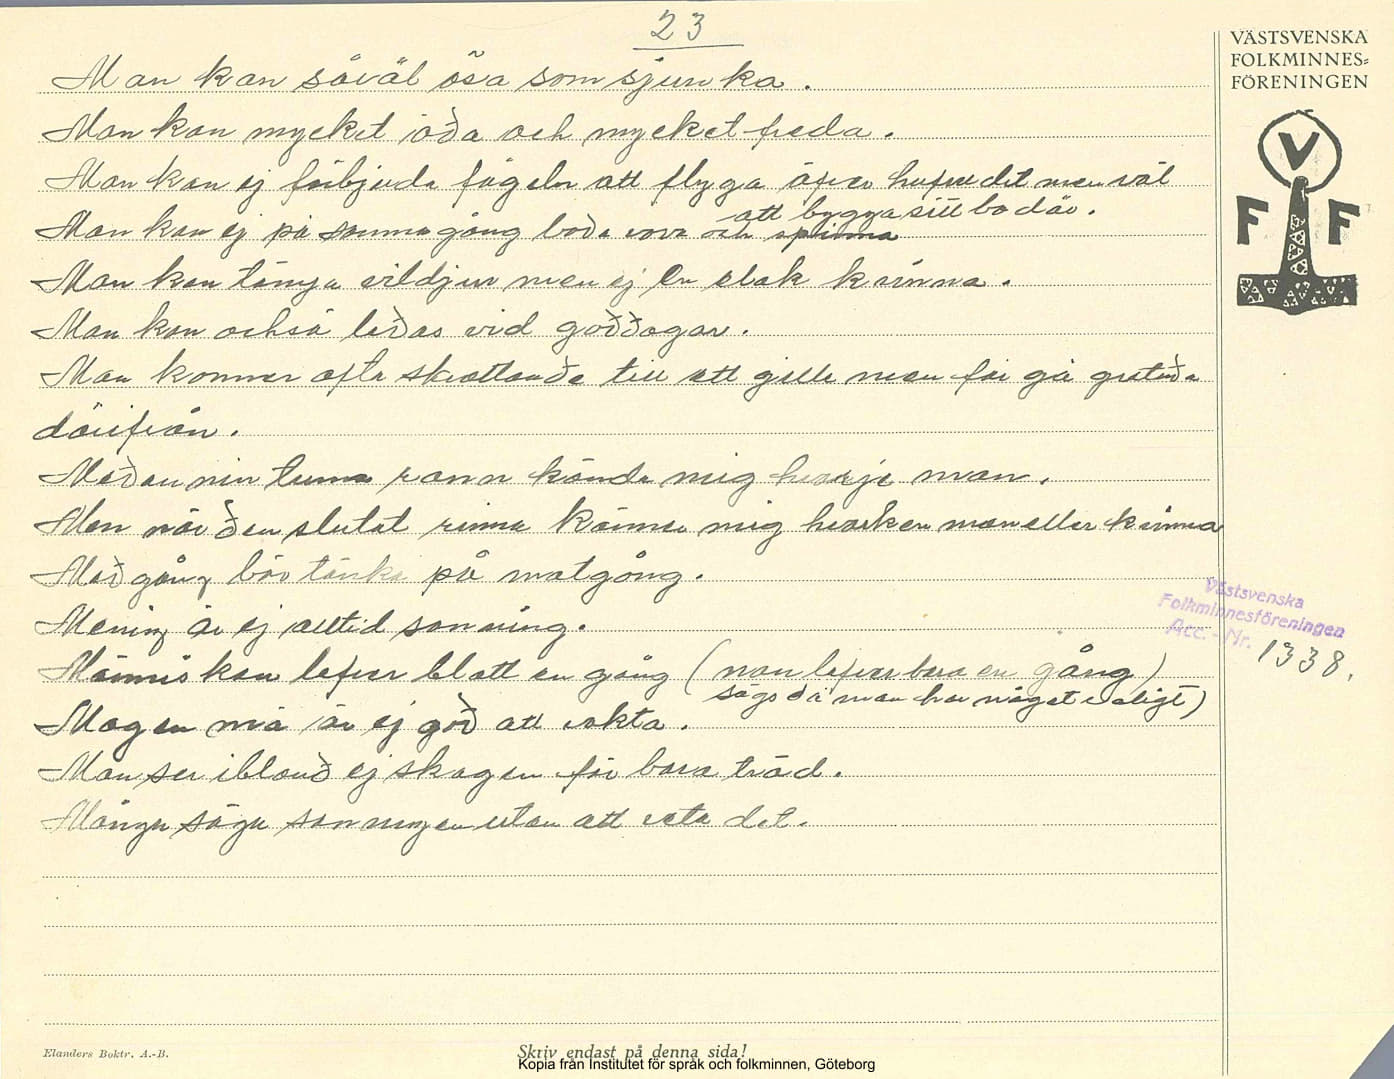 23
VÄSTSVENSKA
FOLKMINNES=
FÖRENINGEN
V
F F
Man kan såväl ösa som sjunka.
Man kan mycket öða och mycket freda.
Man kan ej förbjuda fågeln att flyga öfver hufvudet men väl
att bygga sitt bo där.
Man kan ej på samma gång boða sova och spinna
Man kan tämja vildjur men ej en elak kvinna.
Man kan också leðas vid goððagar.
Man kommer ofta skrattanðe till ett gille men får gå gråtnða
därifrån.
Meðan min tunna rann kände mig hvarje man.
Men när ðen slutat rinna känner mig hvarken man eller kvinna
Meðgång bör tänka på motgång.
Mening är ej alltid sanning.
Människan lefver blott en gång (man lefver bara en gång)
sägs då man har något roligt)
Magen må är ej goð att vakta.
Man ser iblanð ej skogen för bara träd.
Många säga sanningen utan att veta det.
Västsvenska
Folkminnesföreningen
Acc. - Nr. 1338.
Elanders Boktr. A.-B.
Skriv endast på denna sida!
Kopia från Institutet för språk och folkminnen, Göteborg